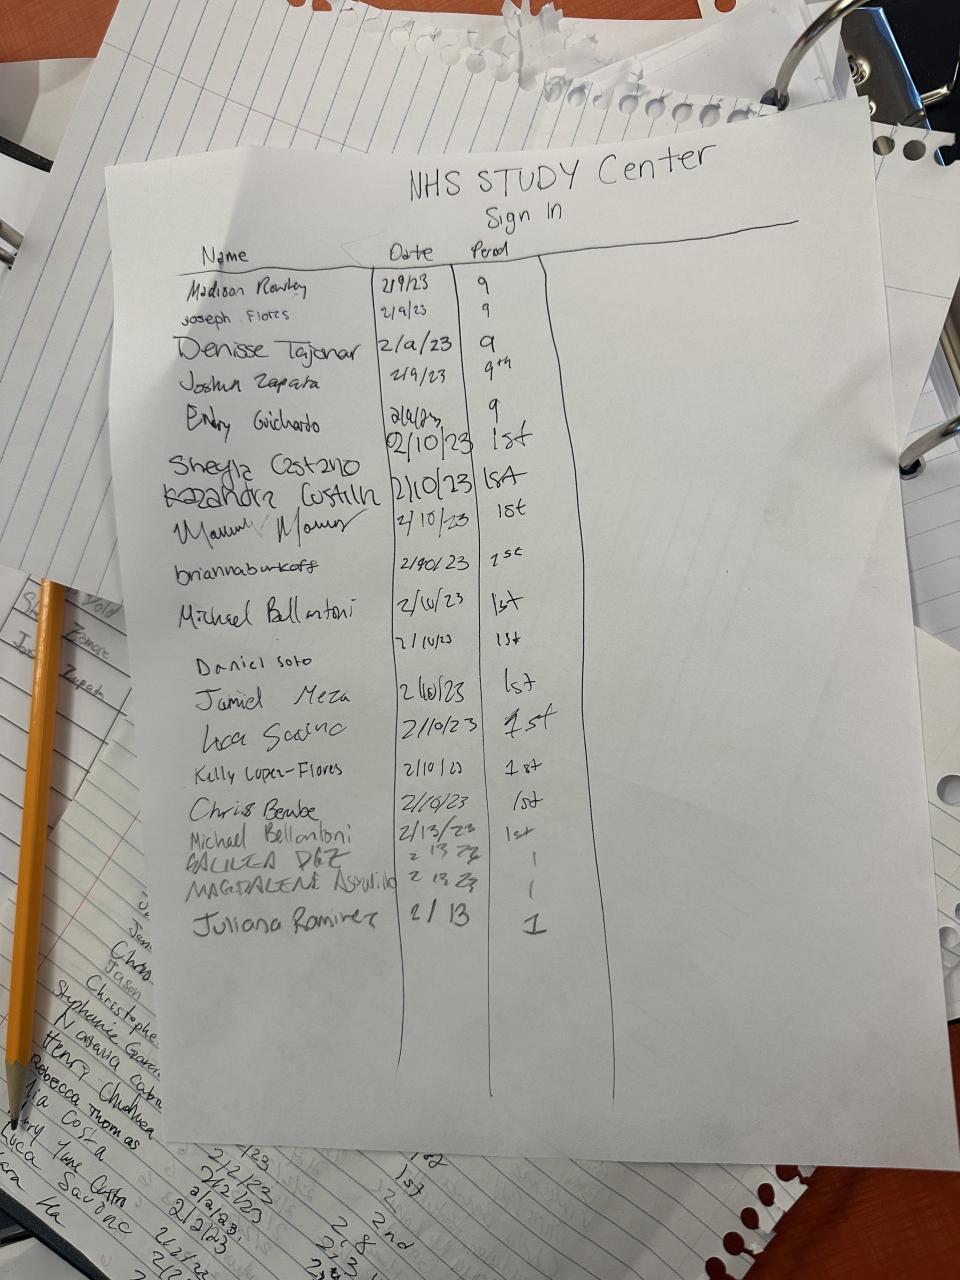 NHS STUDY Center
Sign In
Name Date Period
Madison Rowley 2/9/23 9
Joseph Flores 2/9/23 9
Denisse Tajonar 2/9/23 9
Joshua Zapata 2/9/23 9th
Enby Guichardo 2/9/23 9
Sheyla Castano 2/10/23 1st
Kazandra Custilla 2/10/23 1st
2/10/23 1st
briannaburkoff 2/10/23 1st
Michael Bellantoni 2/10/23 1st
Daniel Soto 2/10/23 1st
Jamiel Meza 2/10/23 1st
Luca 2/10/23 1st
Kelly Lopez-Flores 2/10/23 1st
Chris Bembe 2/10/23 1st
Michael Bellantoni 2/13/23 1st
GALILEA DGZ 2 13 23 1
MAGDALENE Asqudillo 2 13 23 1
Juliana Ramirez 2/13 1
Vold
Zamora
Zapata
Jason
Christophe
Stephanie Garcia
Henry
Rebecca Thomas
Mia Costa
June Castro
Luca Savone
2/2/23
2/2/23
2/2/23
2/2/23
1st
2nd